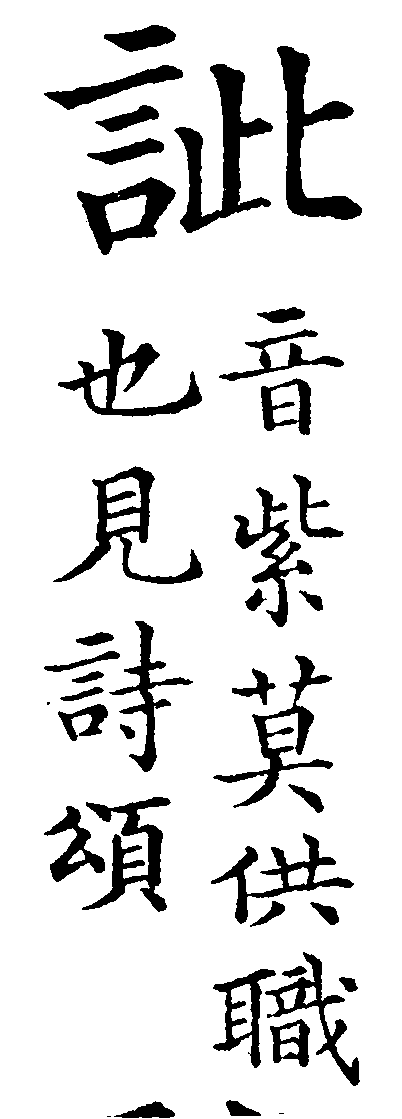 訿
音紫莫供職
也見詩頌